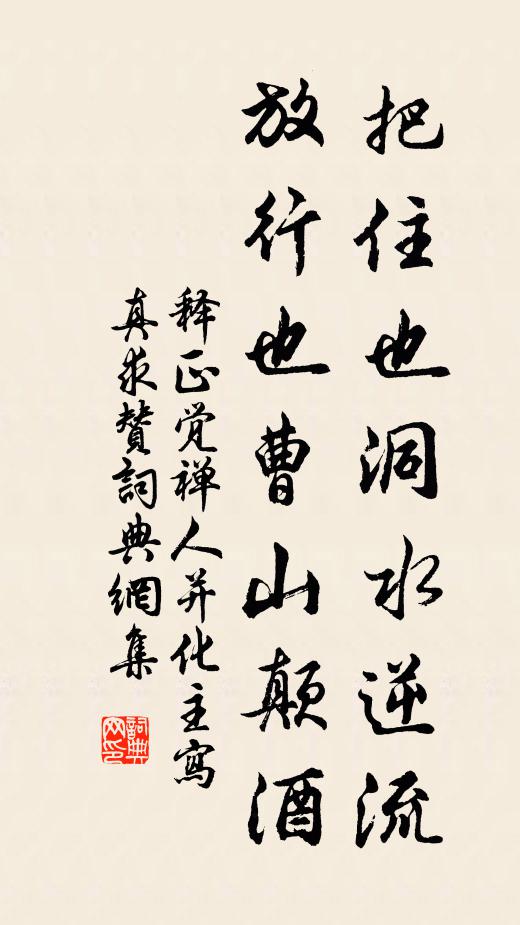 把住也洞水逆流
放行也曹山颠酒
释正觉禅人并化主寫
真求贊詞典網集
詞典网印